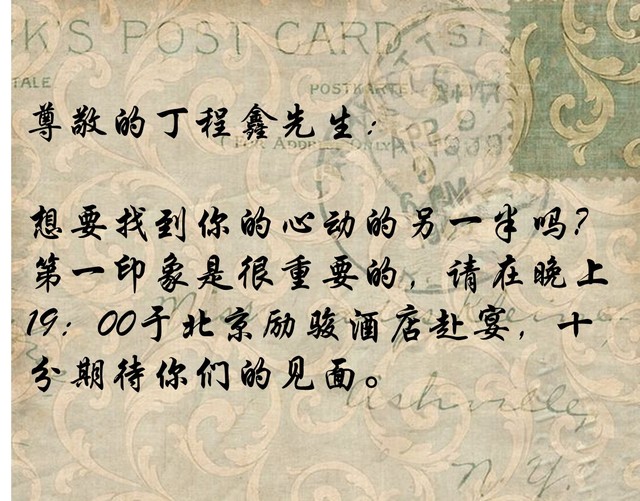 K'S POST CARD
POSTKARTE
尊敬的丁程鑫先生：
For Address Only
想要找到你的心动的另一半吗？
第一印象是很重要的，请在晚上
19：00于北京励骏酒店赴宴，十
分期待你们的见面。
Nashville,
N.Y.